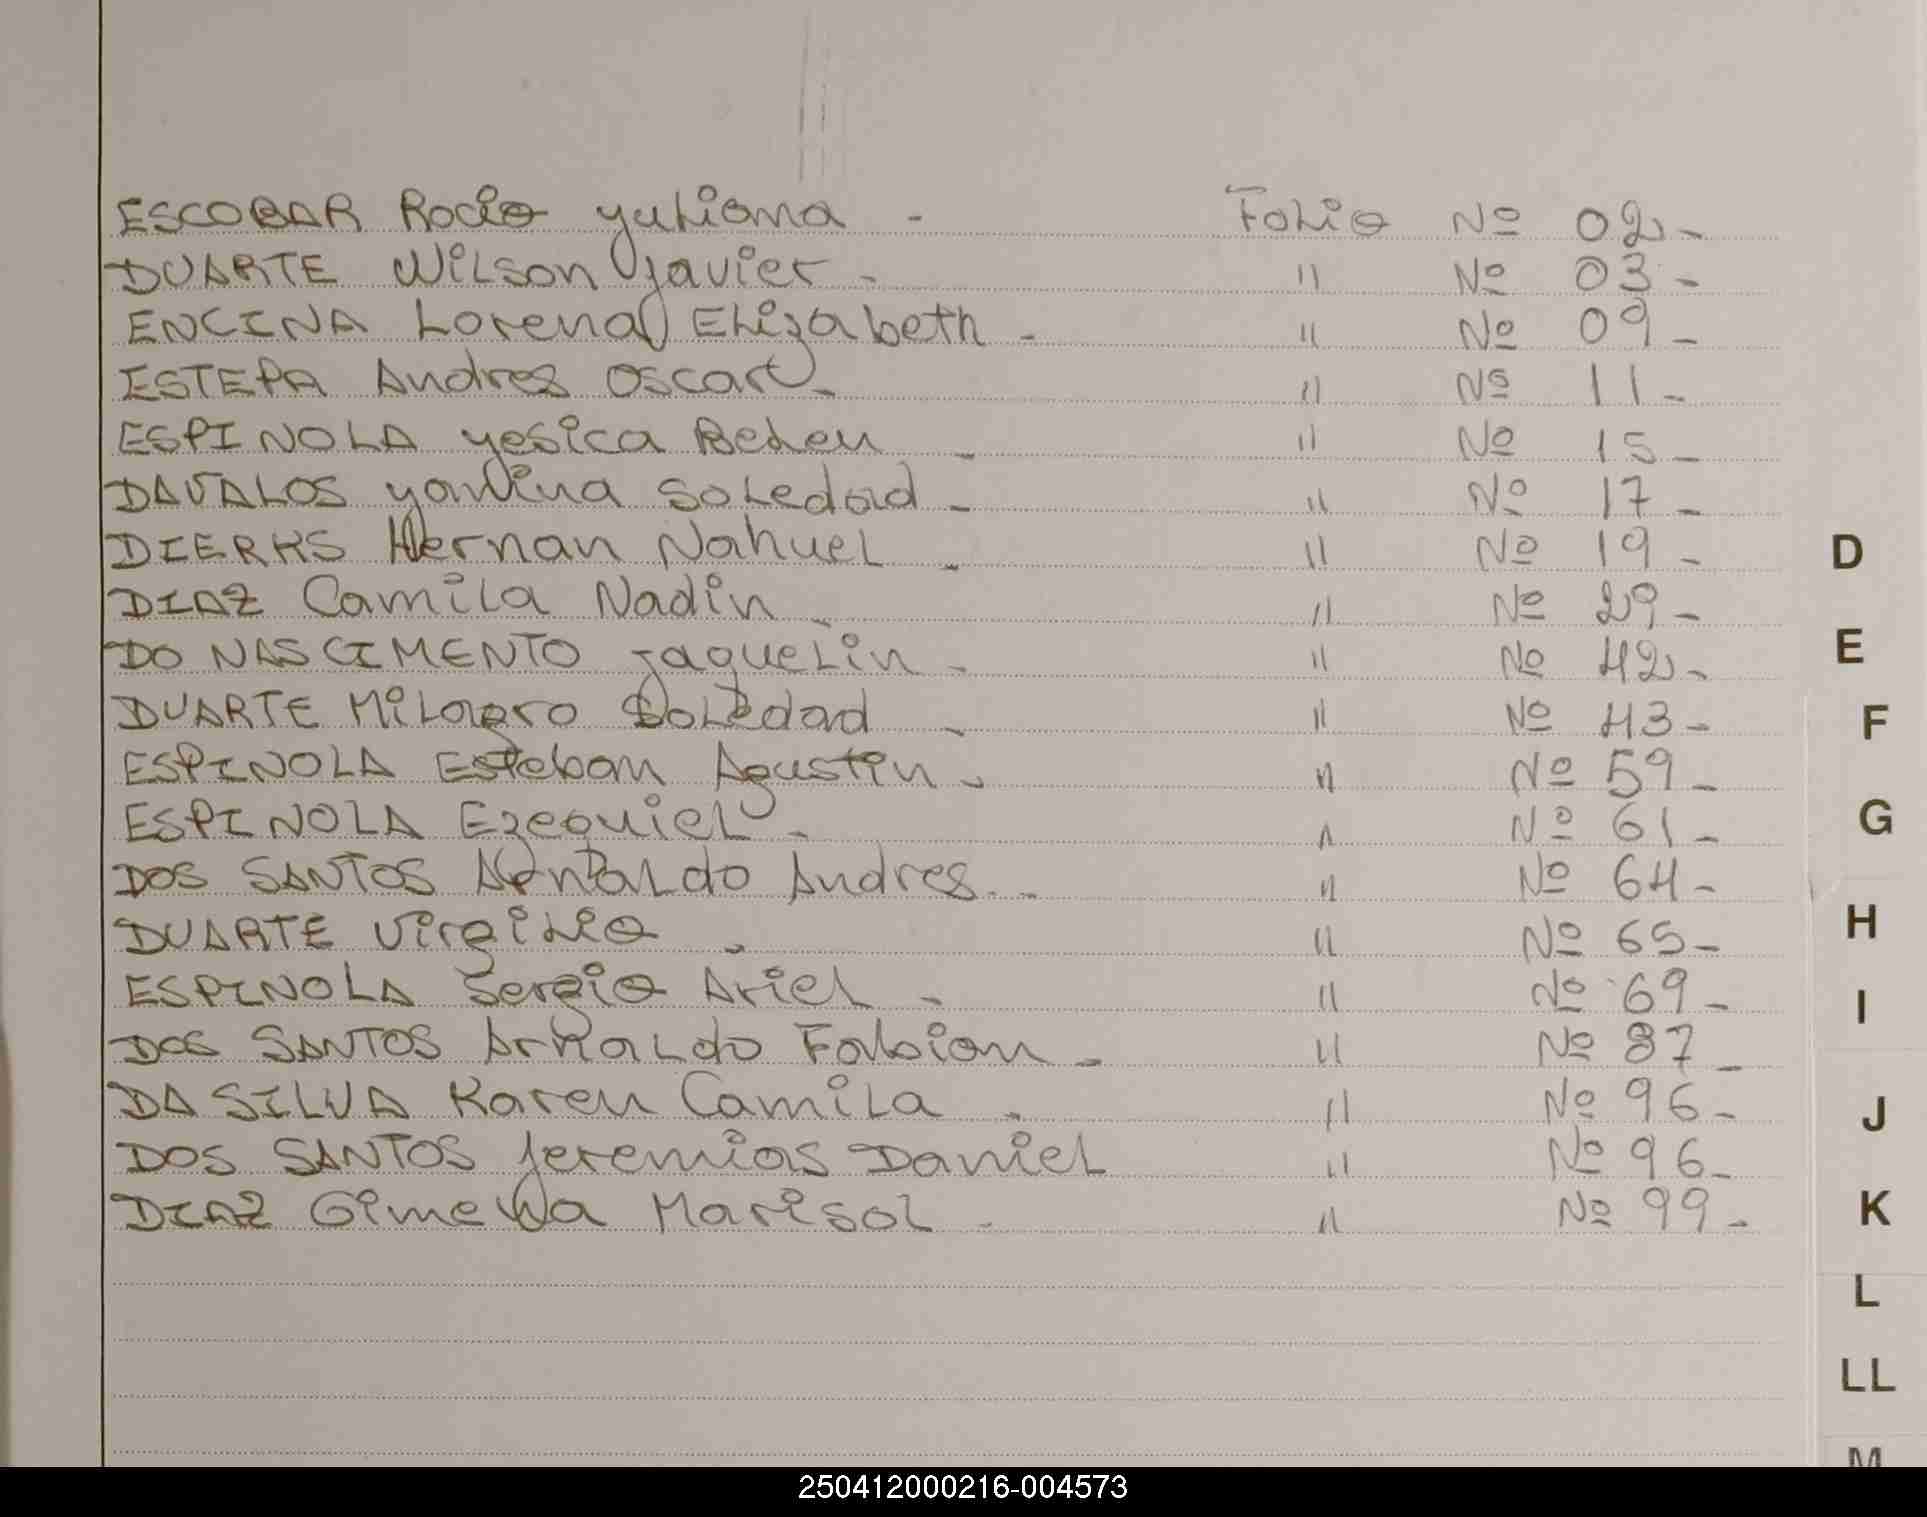 ESCOBAR Rocio Yuliana - Folio Nº 02-
DUARTE Wilson Javier - " Nº 03-
ENCINA Lorena Elizabeth - " Nº 09-
ESTEPA Andres Oscar - " Nº 11-
ESPINOLA Yesica Belen - " Nº 15-
DAVALOS Yanina Soledad - " Nº 17-
DIERKS Hernan Nahuel - " Nº 19-
DIAZ Camila Nadin - " Nº 29-
DO NASCIMENTO Jaquelin - " Nº 42-
DUARTE Milagro Soledad - " Nº 43-
ESPINOLA Esteban Agustin - " Nº 59-
ESPINOLA Ezequiel - " Nº 61-
DOS SANTOS Arnaldo Andres - " Nº 64-
DUARTE Virgilio - " Nº 65-
ESPINOLA Sergio Ariel - " Nº 69-
DOS SANTOS Arnaldo Fabian - " Nº 87-
DA SILVA Karen Camila - " Nº 96-
DOS SANTOS Jeremias Daniel " Nº 96-
DIAZ Gimena Marisol - " Nº 99-
D
E
F
G
H
I
J
K
L
LL
M
250412000216-004573